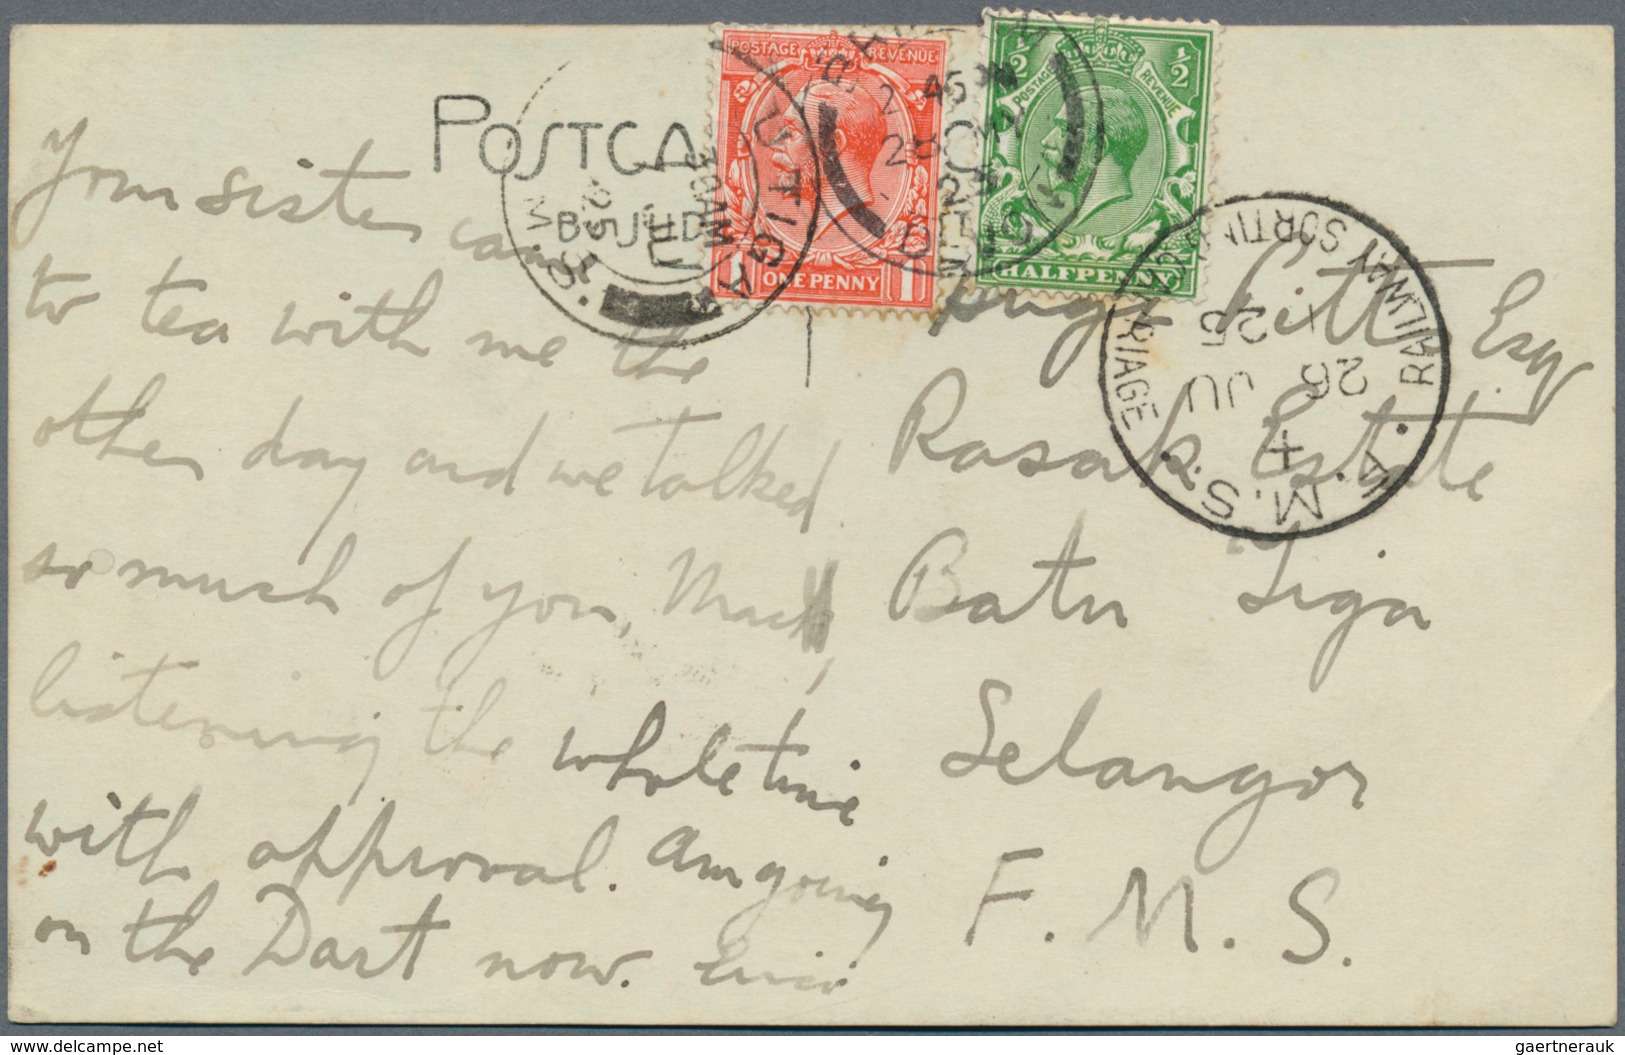 POSTCA
POSTAGE REVENUE
ONE PENNY
1
1
½ ½
POSTAGE REVENUE
HALFPENNY
M.S.
M.S.R.
26 JU
25
RAILWAY SORTIN
RRIAGE
Your sister came
to tea with me the
other day and we talked
so much of you, Mack
listening the whole time
with approval. Am going
on the Dart now.
Pitt Esq
Rasak Estate
Batu Tiga
Selangor
F. M. S.
www.delcampe.net
gaertnerauk